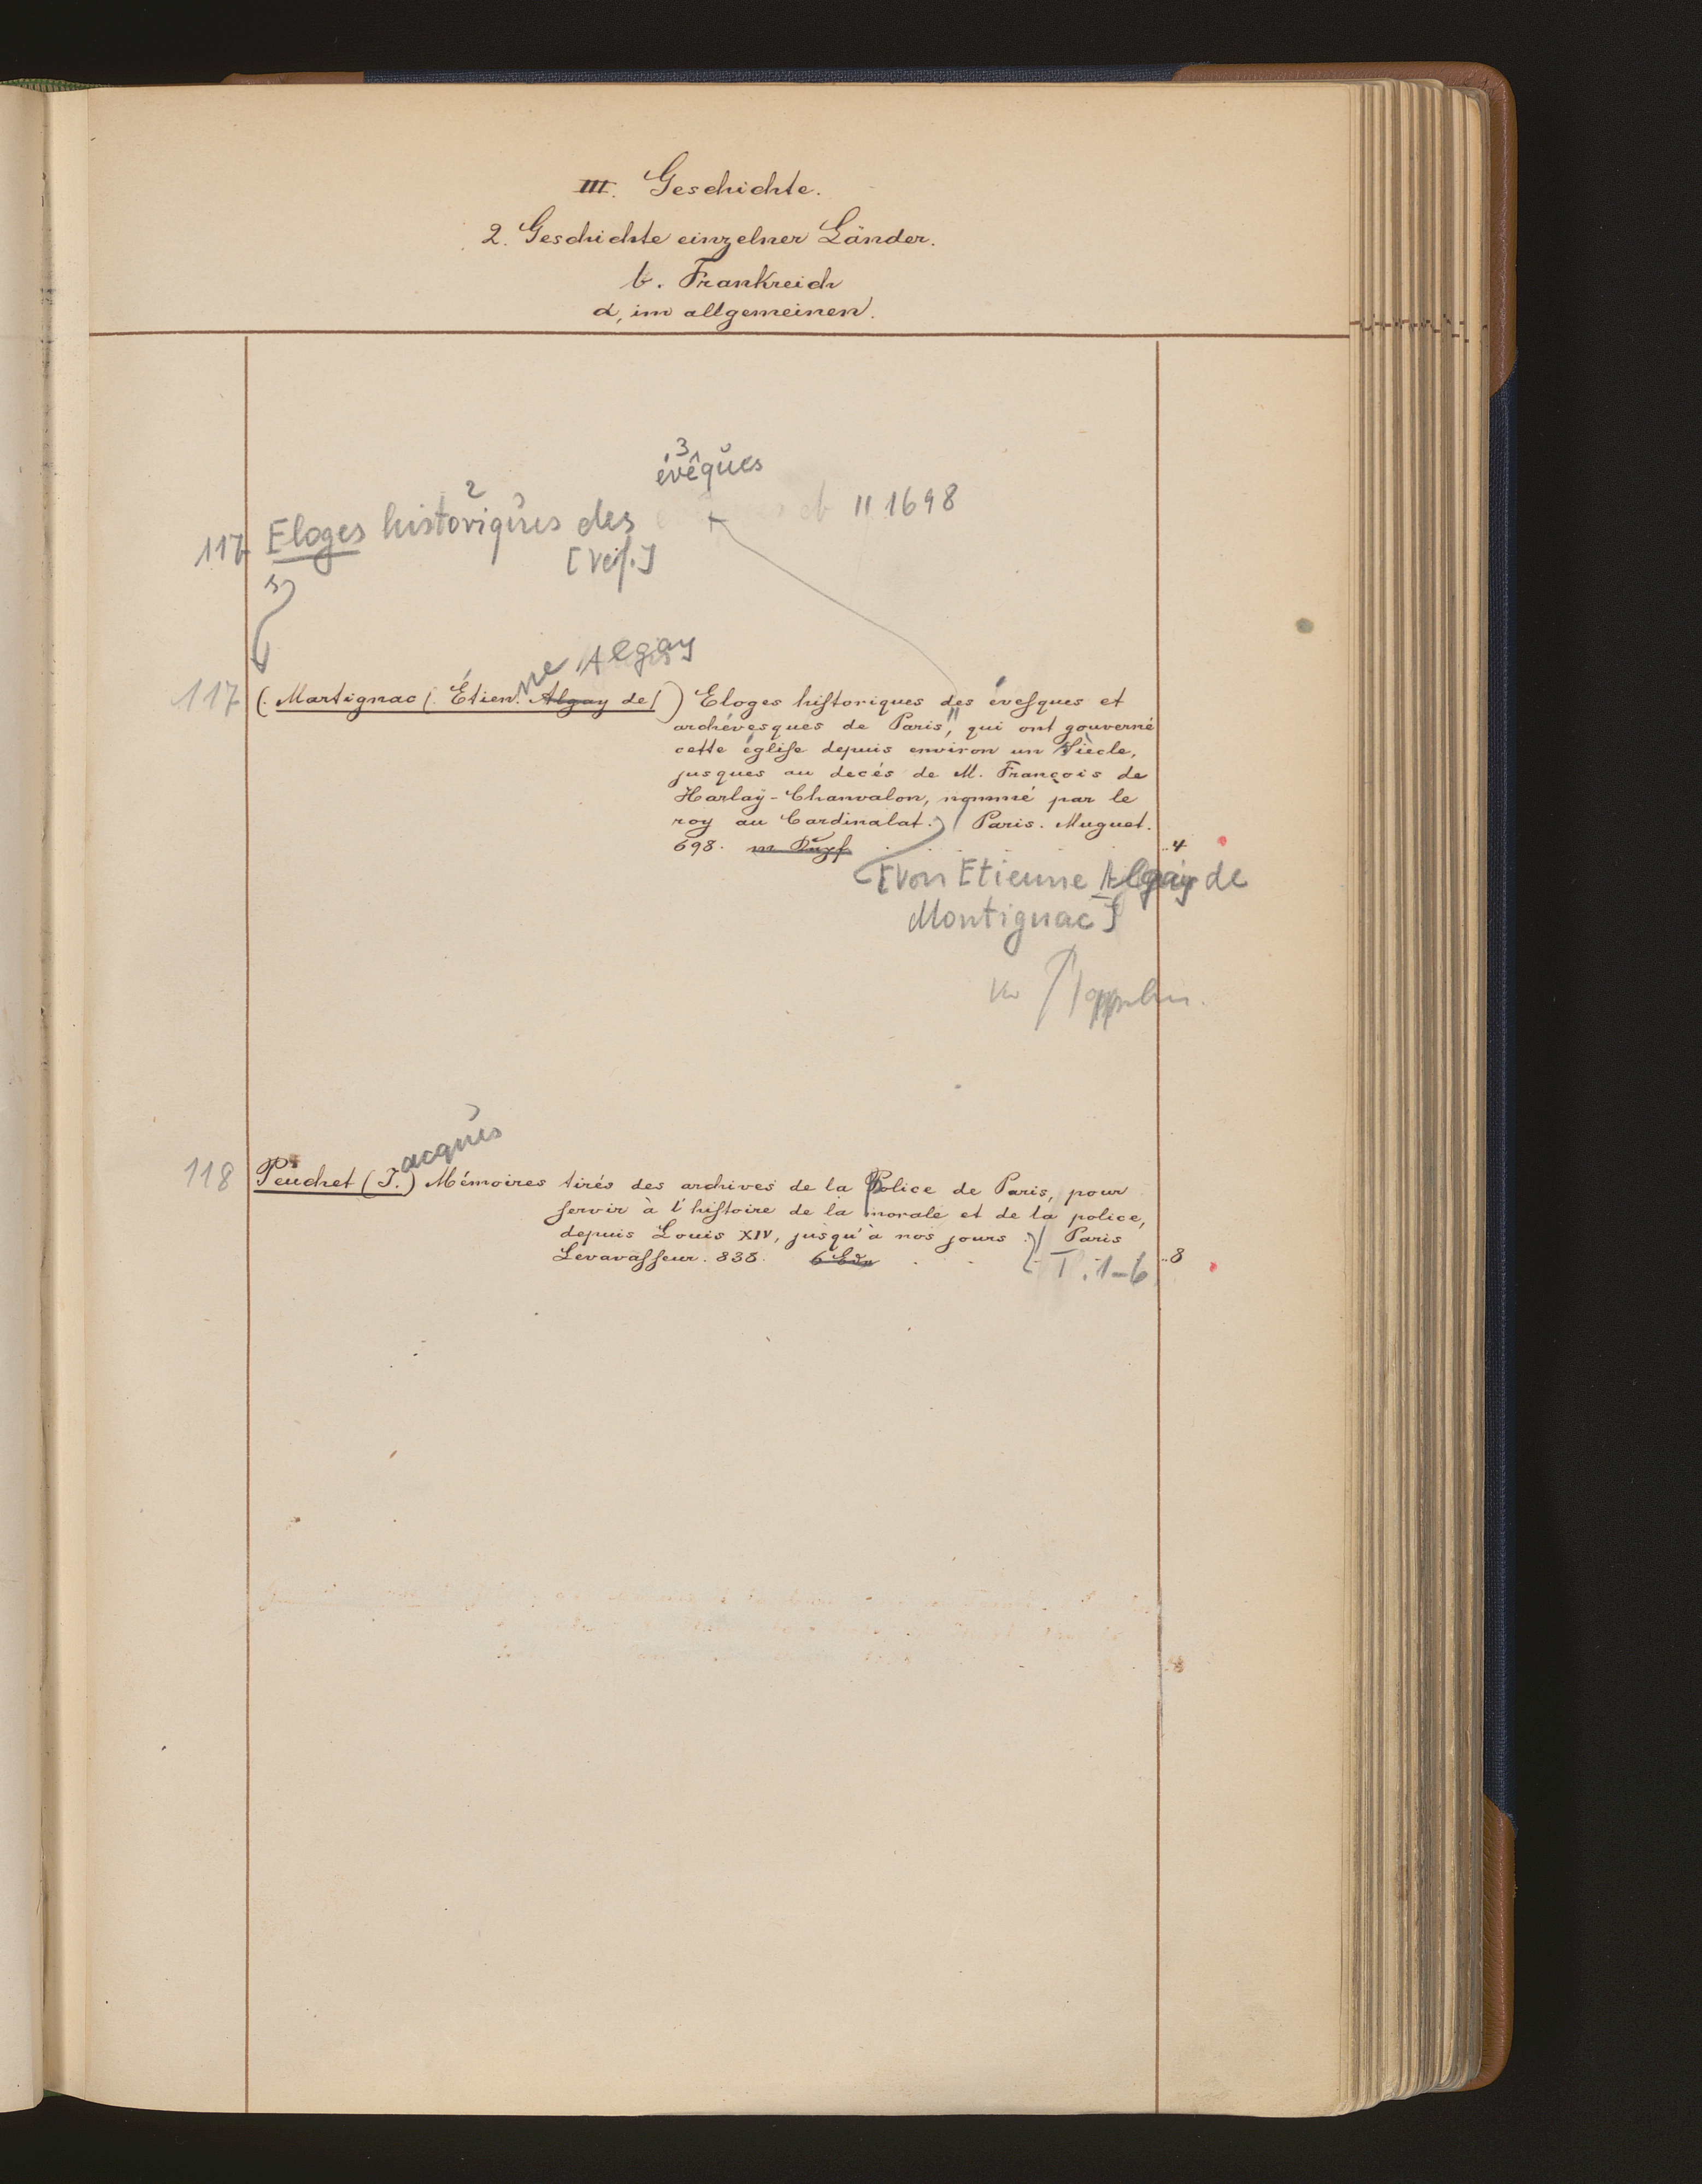 III. Geschichte.
2. Geschichte einzelner Länder.
b. Frankreich
α, im allgemeinen.
3
évêques
2
117 Eloges historiques des et " 1698
[Verf.]
ne Algay
117 (. Martignac (. Étien. Algay de/) Eloges hiſtoriques des éveſques et
archévesques de Paris," qui ont gouverné
cette égliſe depuis environ un Siècle,
jusques au decés de M. François de
Harlaÿ-Chanvalon, nommé par le
roy au Cardinalat.) / Paris. Muguet.
698. m. Kupf . . . . . ..4
[Von Etienne Algay de
Montignac]
acques
118 Peuchet (J.) Mémoires tirés des archives de la Police de Paris, pour
ſervir à l'hiſtoire de la morale et de la police,
depuis Louis XIV, jusqu'à nos jours .)/ Paris
Levavaſſeur. 838. 6 Bde . . T. 1-6 ..8